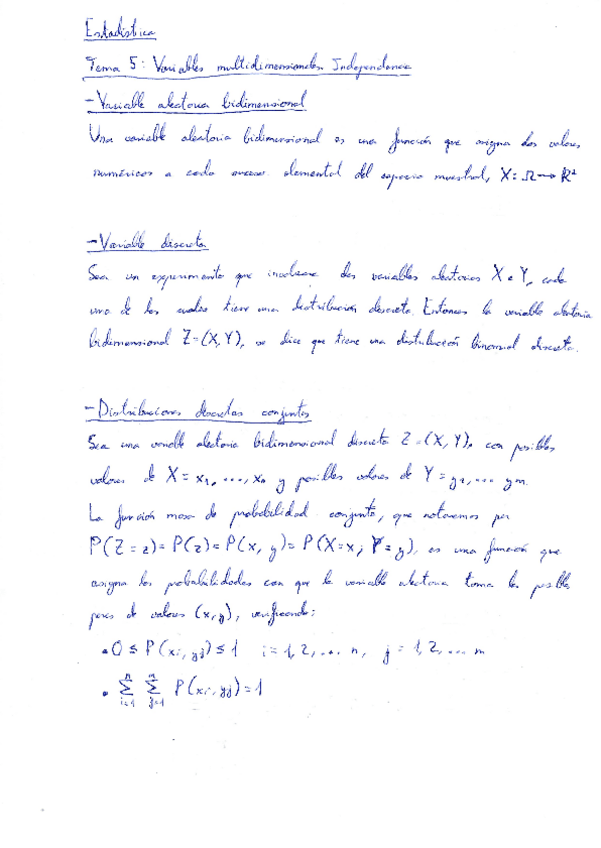 Estadística
Tema 5: Variables multidimensionales. Independencia
- Variable aleatoria bidimensional
Una variable aleatoria bidimensional es una función que asigna dos valores
numéricos a cada suceso elemental del espacio muestral, X: Ω → R²
- Variable discreta
Sea un experimento que involucra dos variables aleatorias X e Y, cada
una de las cuales tiene una distribución discreta. Entonces la variable aleatoria
bidimensional Z=(X,Y), se dice que tiene una distribución discreta.
- Distribuciones discretas conjuntas
Sea una variable aleatoria bidimensional discreta Z=(X,Y), con posibles
valores de X = x1, ..., xn y posibles valores de Y = y1, ... ym.
La función masa de probabilidad conjunta, que notaremos por
P(Z=z)=P(z)=P(x,y)=P(X=x; Y=y), es una función que
asigna las probabilidades con que la variable aleatoria toma los posibles
pares de valores (x,y), verificando:
• 0 ≤ P(xi, yj) ≤ 1 i=1,2,... n, j=1,2,... m
• ∑i=1 ∑j=1 P(xi, yj)=1